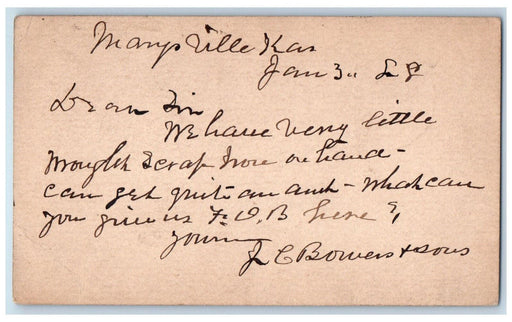 Marysville Kan
Jan 3"
Dear Sir
We have very little
Wrought Scrap Iron on hand -
can get quite an amt - What can
you give us F.O.B here ?
yours
J C Bowers & sons